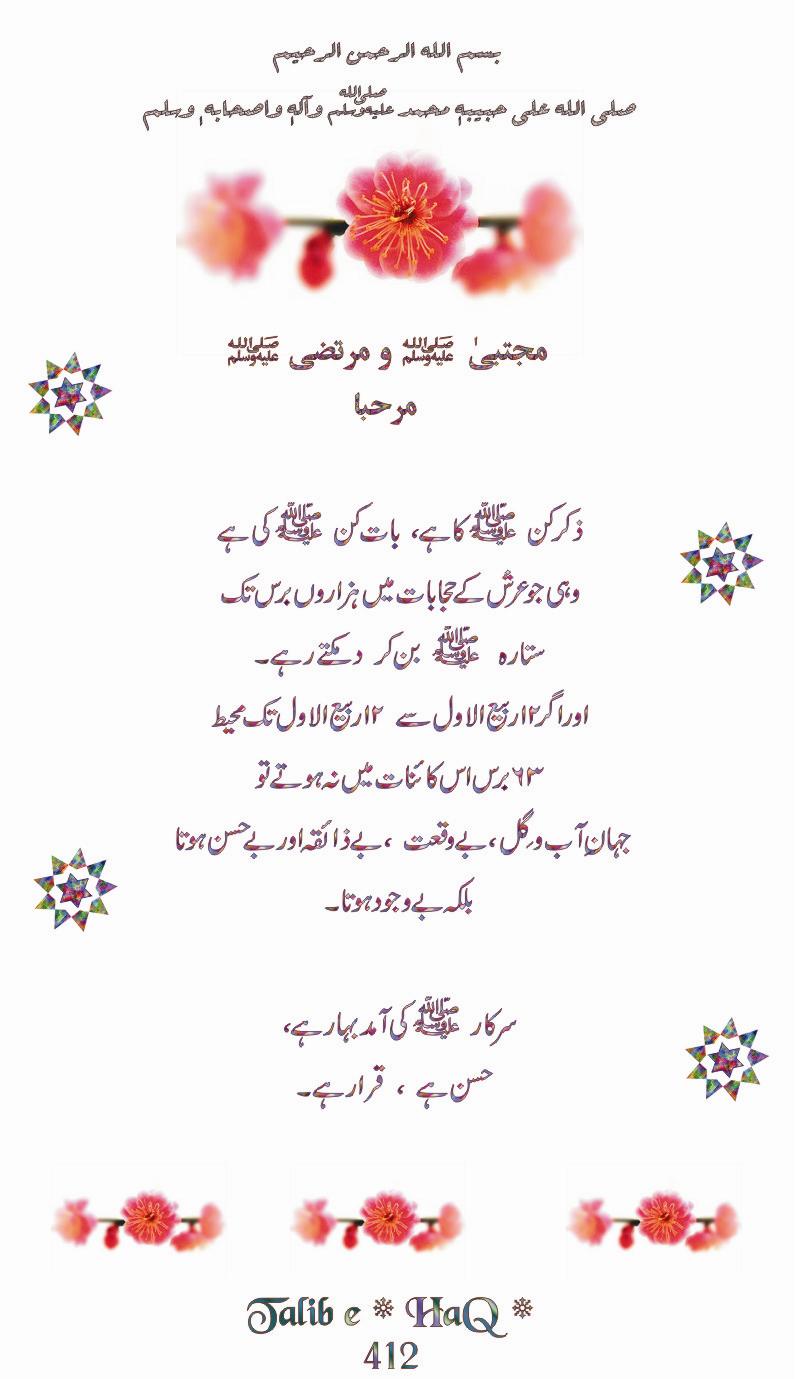 بسم الله الرحمن الرحیم
صلی الله علی حبیبہٖ محمد ﷺ وآلہٖ واصحابہٖ وسلم
مجتبیٰ ﷺ و مرتضی ﷺ
مرحبا
ذکر کن ﷺ کا ہے، بات کن ﷺ کی ہے
وہی جو عرش کے حجابات میں ہزاروں برس تک
ستارہ ﷺ بن کر دمکتے رہے۔
اور اگر ۱۲ ربیع الاول سے ۱۲ ربیع الاول تک محیط
۶۳ برس اس کائنات میں نہ ہوتے تو
جہانِ آب و گِل، بے وقعت ، بے ذائقہ اور بے حسن ہوتا
بلکہ بے وجود ہوتا۔
سرکار ﷺ کی آمد بہار ہے،
حسن ہے ، قرار ہے۔
Talib e ❊ HaQ ❊
412